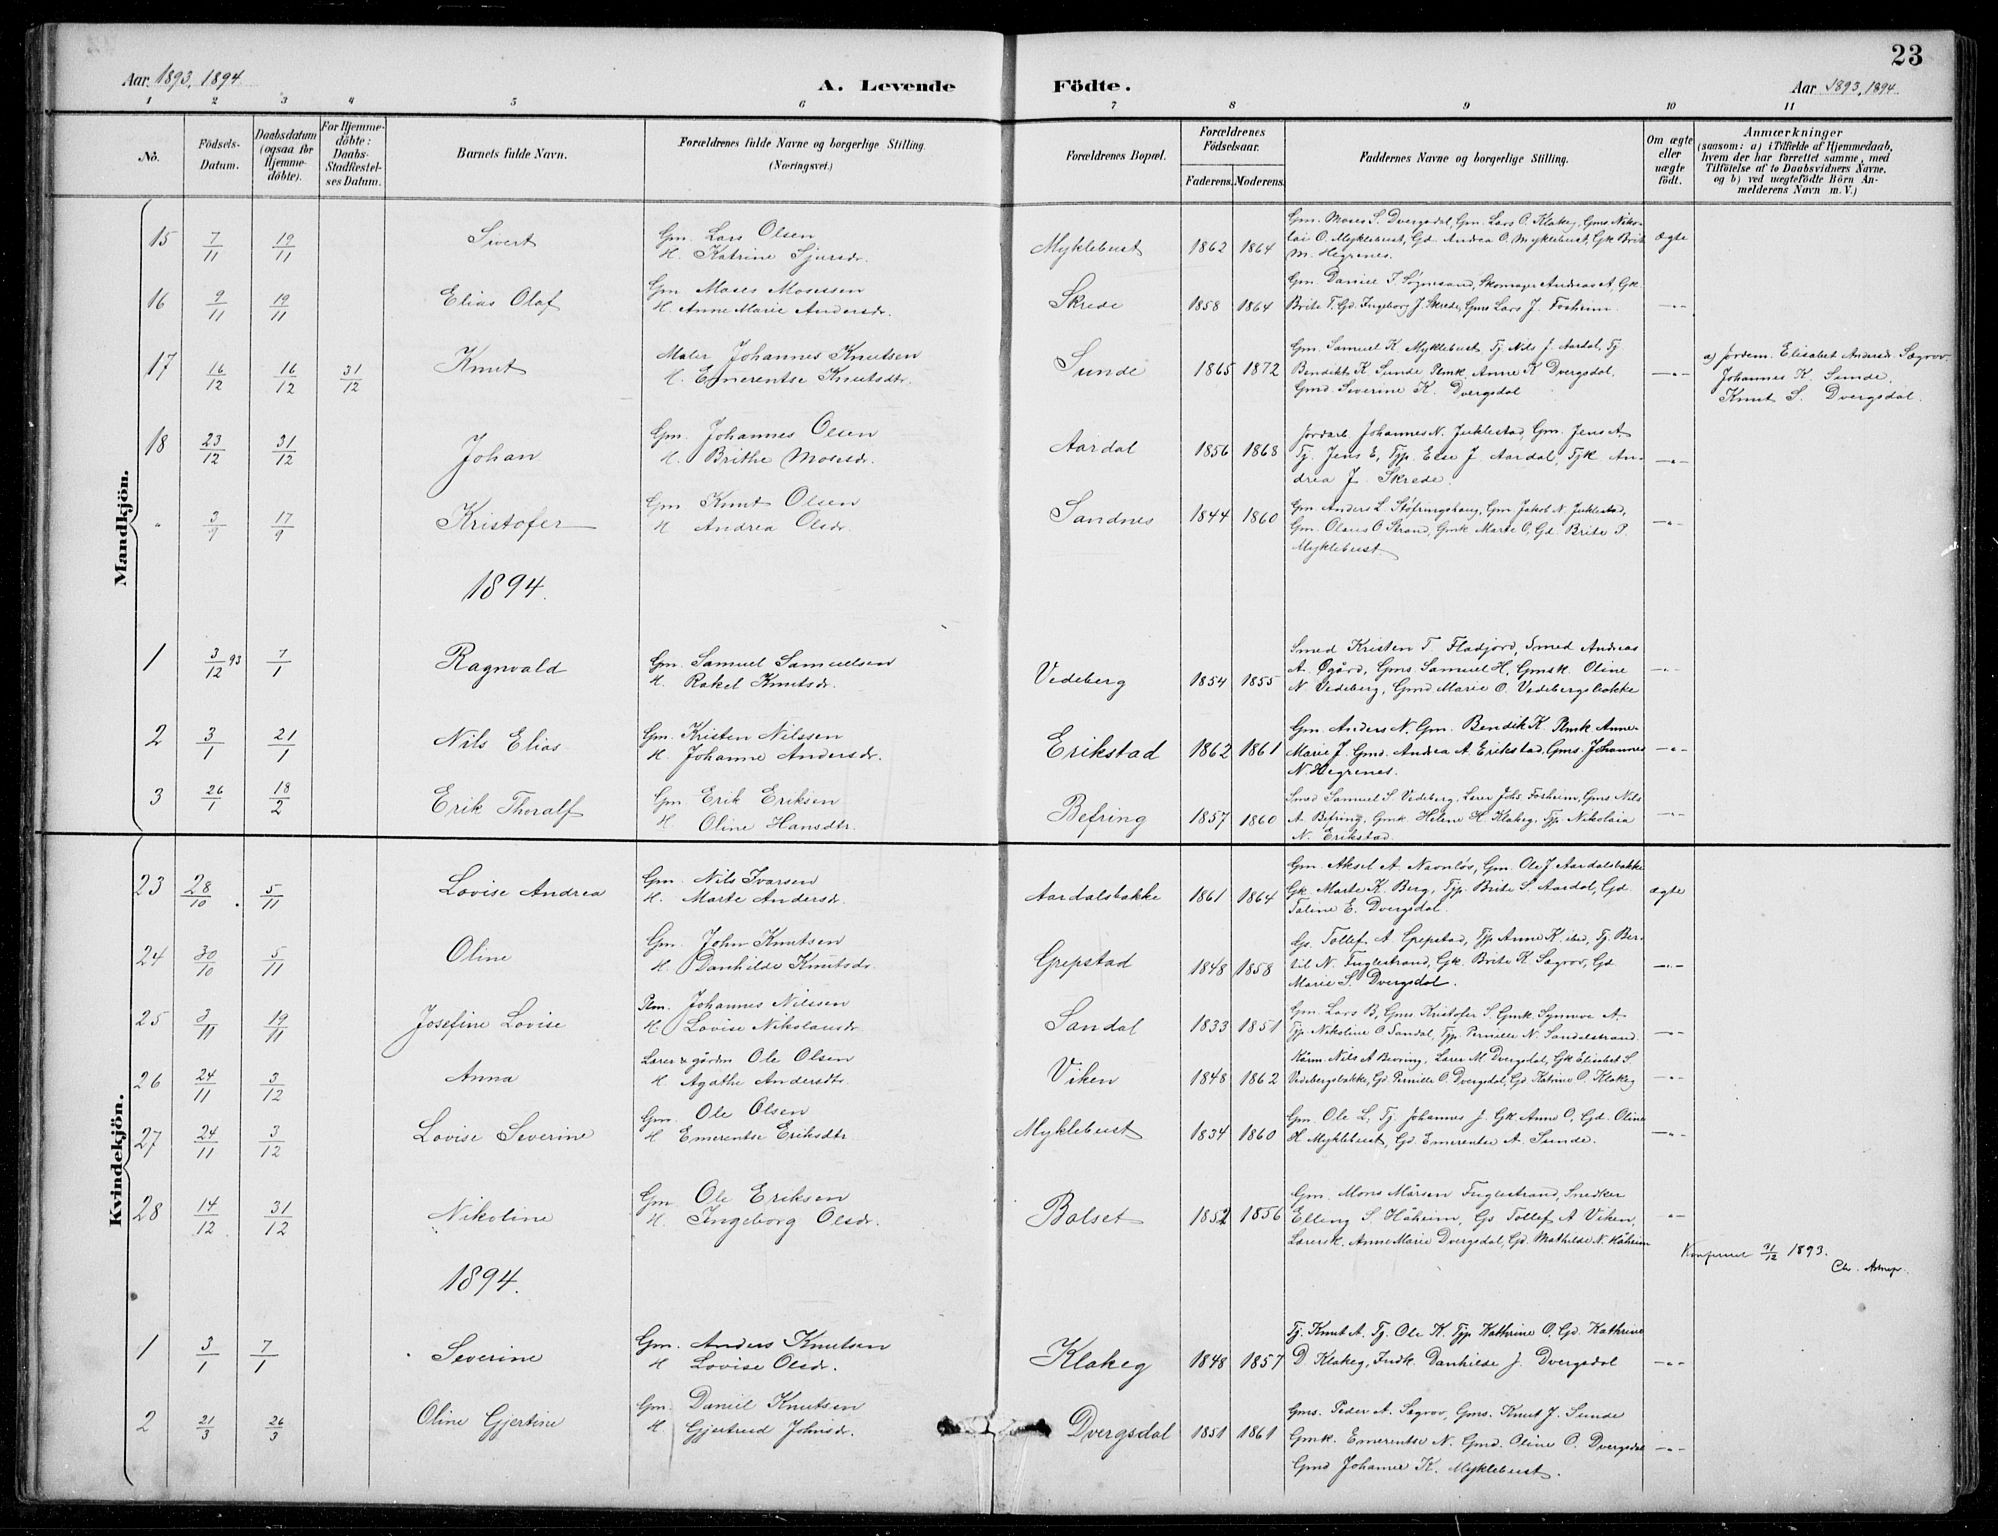 23
Aar 1893, 1894
A. Levende Födte.
Aar 1893, 1894
1 2 3 4 5 6 7 8 9 10 11
No.
Födsels-Datum.
Daabsdatum (ogsaa for Hjemme-döbte).
For Hjemme-döbte: Daabs-Stadfæstel-ses Datum.
Barnets fulde Navn.
Forældrenes fulde Navne og borgerlige Stilling. (Næringsvei.)
Forældrenes Bopæl.
Forældrenes Födselsaar.
Faderens. Moderens.
Faddernes Navne og borgerlige Stilling.
Om ægte eller uægte födt.
Anmærkninger
(saasom: a) i Tilfælde af Hjemmedaab, hvem der har forrettet samme, med Tilföielse af to Daabsvidners Navne, og b) ved uægtefödte Börn An-melderens Navn m. V.)
Mandkjön.
15 7/11 19/11 Sivert Gm. Lars Olsen Myklebust 1862 1864 Gm. Moses S. Dvergsdal, Gm. Lars O. Klakeg, Gms Niko-
H. Katrine Sjursdr. lai O. Myklebust, Gd. Andrea O. Myklebust, Gk Brit ægte
M. Hegrenes.
16 9/11 19/11 Elias Olaf Gm Moses Mosesen Skrede 1858 1864 Gm Daniel J. Sögnesand, Skomager Andreas A, Gk
H. Anne Marie Andersdr. Brite T. Gd. Ingeborg J. Skrede, Gms Lars J. Forheim. —"—
17 16/12 16/12 31/12 Knut Maler Johannes Knutsen Sunde 1865 1872 Gm. Samuel K. Myklebust Tj. Nils J. Aardal, Tj
H. Emerentse Knutsdtr. Bendikt K Sunde Pmk Anne K Dvergsdal, —"—
Gmd. Severine K. Dvergsdal
a) Jordem. Elisabet Andersdr. Sægrov.
Johannes K. Sunde.
Knut S. Dvergsdal.
18 23/12 31/12 Johan Gm. Johannes Olsen Aardal 1856 1868 Jordarb Johannes N. Juklestad, Gm. Jens A.
H. Brithe Mosesdr. Tj. Jens E, Tjp Else J Aardal, Tjk An-
drea J. Skrede. —"—
" 3/9 17/9 Kristofer Gm Knut Olsen Sandnes 1844 1860 Gm Anders L Stöfringshaug, Gm Jakob N. Juklestad,
H Andrea Olsdr. Gm Olaus O Strand, Gmk Marte O, Gd. Brite P. —"—
Myklebust.
1894.
1 3/12 93 7/1 Ragnvald Gm. Samuel Samuelsen Vedeberg 1854 1855 Smed Kristen T. Fladjord, Smed Andreas
H. Rakel Knutsdr. A. Øgård, Gms Samuel H, Gmsk. Oline —"—
N. Vedeberg, Gmd Marie O. Vedebergsbakke
2 3/1 21/1 Nils Elias Gm. Kristen Nilssen Erikstad 1862 1861 Gm Anders N. Gm. Bendik K Pmk Anne
H. Johanne Andersdr. Marie J. Gmd. Andrea A. Erikstad, Gms. Johannes —"—
N. Hegrenes.
3 26/1 18/2 Erik Thoralf Gm. Erik Eriksen Befring 1857 1860 Smed Samuel S. Vedeberg, Lærer Johs. Forheim, Gms Nils
H Oline Hansdtr. A. Befring, Gmk Helene H. Klakeg, Tjp. Nikolaia —"—
N. Erikstad.
Kvindekjön.
23 28/10 5/11 Lovise Andrea Gm. Nils Ivarsen Aardalsbakke 1861 1864 Gm Aksel A. Navnløs, Gm. Ole J Aardalsbakke
H. Marte Andersdr. Gk Marte K. Berg, Tjp. Brite S. Aardal, Gd ægte
Taline E. Dvergsdal.
24 30/10 5/11 Oline Gm. John Knutsen Grepstad 1848 1858 Gs. Tollef A Grepstad, Tjp Anne K ibd, Tj. Ber-
H. Danhilde Knutsdr. til N. Fuglestrand, Gk. Brite K Sægrov, Gd —"—
Marie S. Dvergsdal.
25 3/11 19/11 Josefine Lovise Pm. Johannes Nilssen Sandal 1833 1851 Gm. Lars B, Gms Kristofer S. Gmk. Synnøve A.
H Lovise Nikolausdr. Tjp Nikoline O Sandal, Tjp Pernille N. Sandalstrand. —"—
26 24/11 3/12 Anna Lærer & gårdm Ole Olsen Viken 1848 1862 Kårm. Nils A Bevring, Lærer M Dvergsdal, Gk Elisabet S
H. Agathe Andersdtr. Vedebergsbakke, Gd Pernille O. Dvergsdal, Gd Katrine O. Klakeg —"—
27 24/11 3/12 Lovise Severine Gm. Ole Olsen Myklebust 1834 1860 Gm. Ole L, Tj. Johannes J. Gk Anne O, Gd. Oline
H Emerentse Eriksdtr. H Myklebust, Gd. Emerentse A. Sunde. —"—
28 14/12 31/12 Nikoline Gm Ole Eriksen Bolset 1852 1856 Gm. Mons Mårsen Fuglestrand, Snedker
H. Ingeborg Olsdr. Elling S. Håheim, Gs Tollef A Viken, —"—
Lærersk. Anne Marie Dvergsdal, Gd. Mathilde N. Håheim
31/12 1893.
Chr.
1894.
1 3/1 7/1 Severine Gm. Anders Knutsen Klakeg 1848 1857 Tj. Knut A. Tj. Ole K. Tjp Kathrine O. Gd. Kathrine
H Lovise Olsdr. D. Klakeg, Indk. Danhilde J. Dvergsdal —"—
2 21/3 26/3 Oline Gjertine Gm. Daniel Knutsen Dvergsdal 1851 1861 Gms. Peder A. Sægrov, Gms. Knut J. Sunde
H. Gjertrud Johnsdr. Gmk. Emerentse N. Gmd. Oline O. Dvergsdal —"—
Gmd Johanne K. Myklebust.